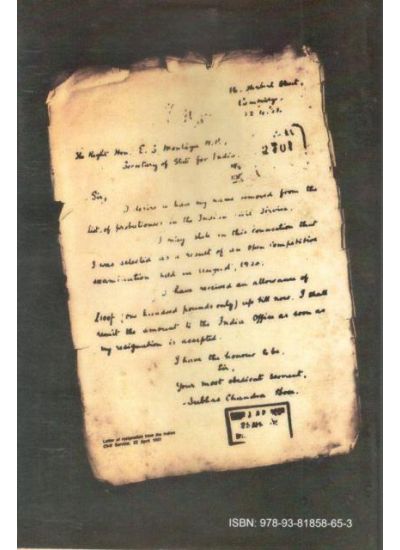 16, Herbert Street,
Cambridge
22.4.21
2701
The Right Hon. E. S. Montagu M.P.,
Secretary of State for India.
Sir,
I desire to have my name removed from the
list of probationers in the Indian Civil Service.
I may state in this connection that
I was selected as a result of an open competitive
examination held in August, 1920.
I have received an allowance of
£100/- (one hundred pounds only) up till now. I shall
remit the amount to the India Office as soon as
my resignation is accepted.
I have the honour to be,
Sir,
Your most obedient servant,
Subhas Chandra Bose.
Letter of resignation from the Indian
Civil Service, 22 April 1921
ISBN: 978-93-81858-65-3